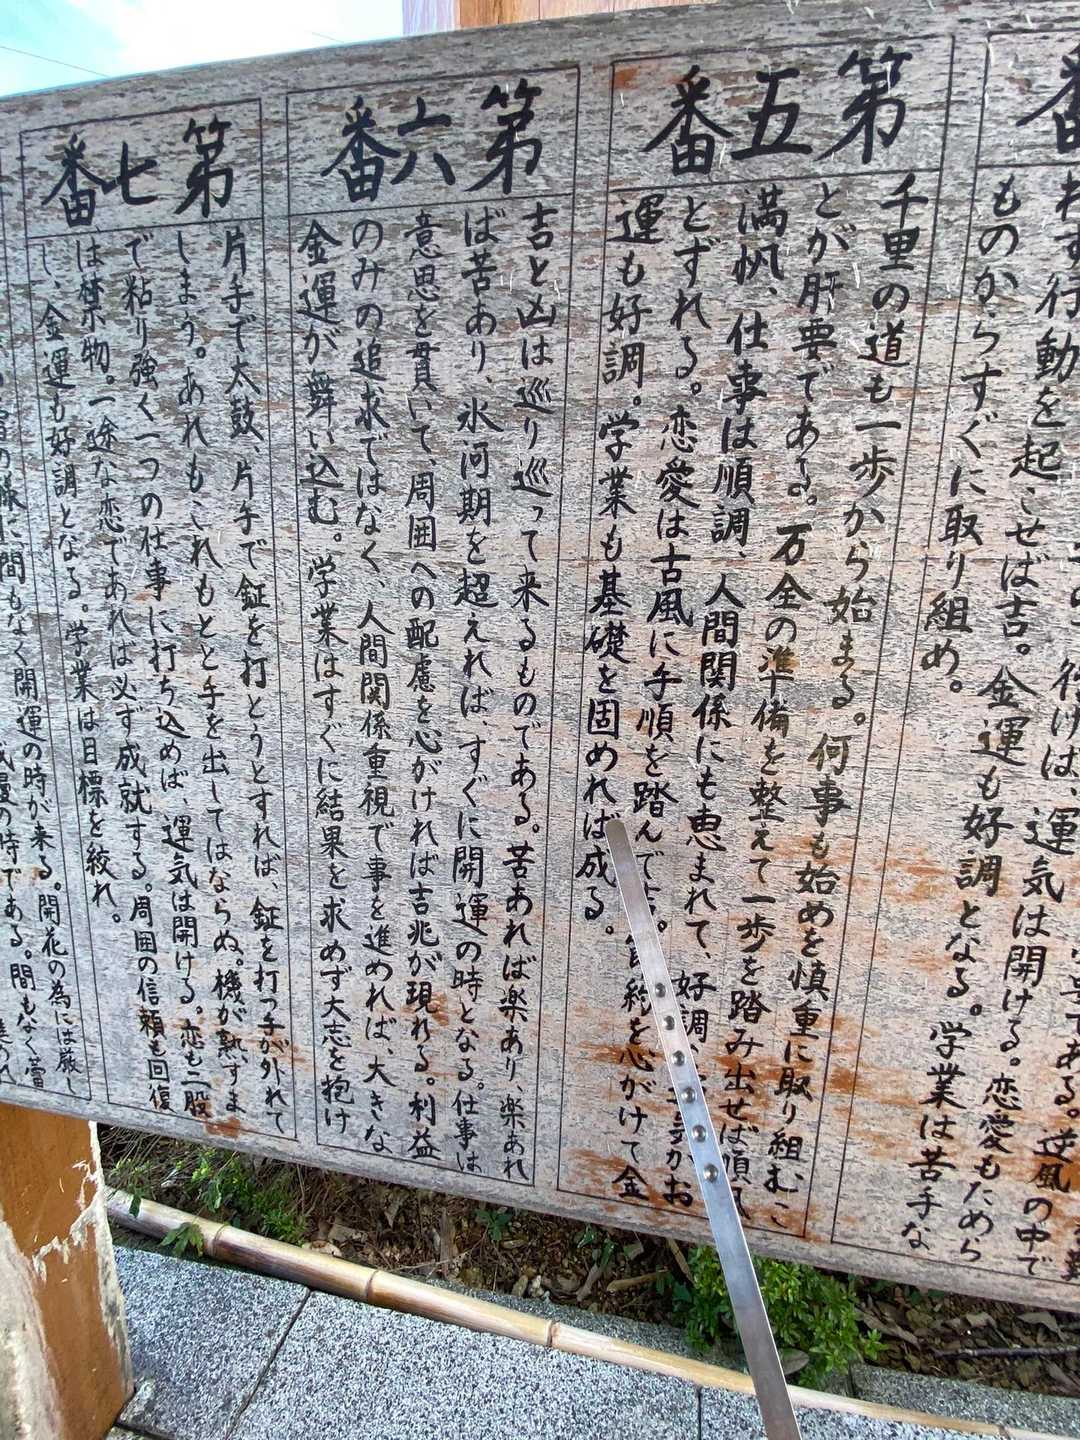 番
わず行動を起こせば吉。金運も好調となる。学業は苦手な
ものからすぐに取り組め。
行けば、運気は開ける。恋愛もためら
である。逆風の中で
第五番
千里の道も一歩から始まる。何事も始めを慎重に取り組むこ
とが肝要である。万全の準備を整えて一歩を踏み出せば順風
満帆、仕事は順調、人間関係にも恵まれて、好調、
とずれる。恋愛は古風に手順を踏んで吉。節約を心がけて金
運も好調。学業も基礎を固めれば成る。
第六番
吉と凶は巡り巡って来るものである。苦あれば楽あり、楽あれ
ば苦あり、氷河期を超えれば、すぐに開運の時となる。仕事は
意思を貫いて、周囲への配慮を心がければ吉兆が現れる。利益
のみの追求ではなく、人間関係重視で事を進めれば、大きな
金運が舞い込む。学業はすぐに結果を求めず大志を抱け
第七番
片手で太鼓、片手で鉦を打とうとすれば、鉦を打つ手が外れて
しまう。あれもこれもと手を出してはならぬ。機が熟すま
で粘り強く一つの仕事に打ち込めば、運気は開ける。恋も二股
は禁物。一途な恋であれば必ず成就する。周囲の信頼も回復
し、金運も好調となる。学業は目標を絞れ。
間もなく開運の時が来る。開花の為には厳し
我慢の時である。間もなく蕾